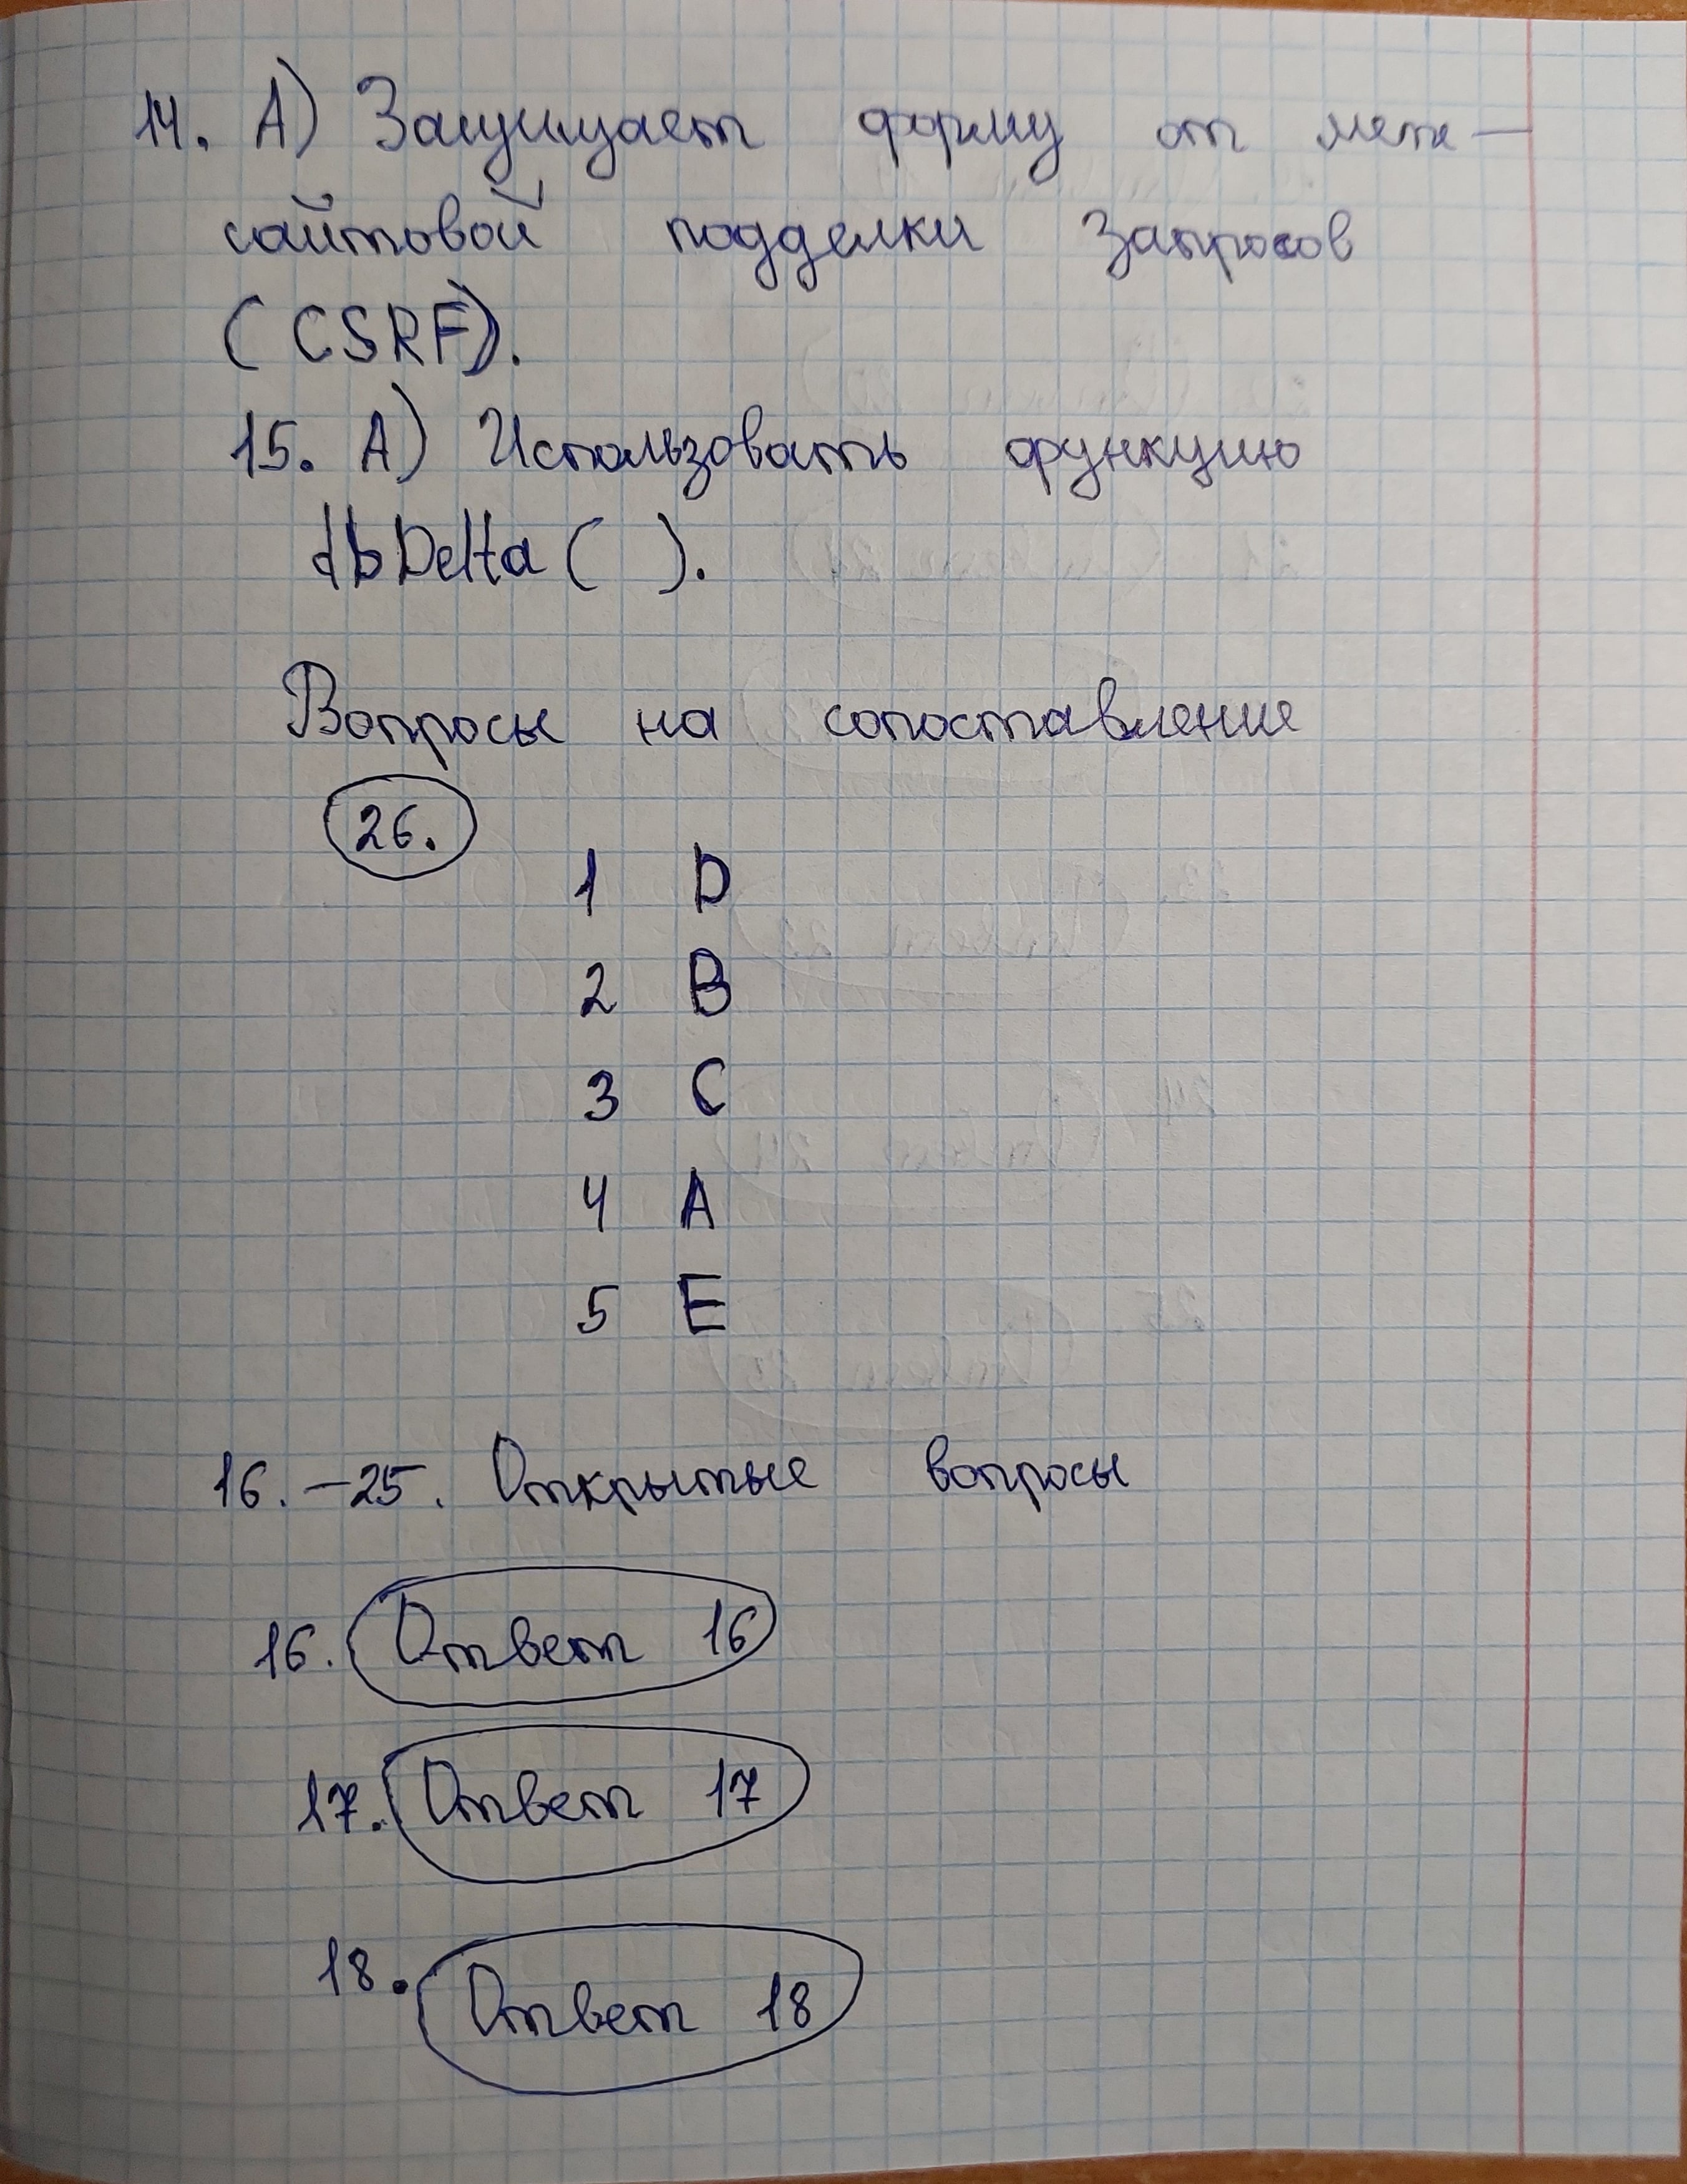 14. А) Защищает форму от меж-
сайтовой подделки запросов
(CSRF).
15. А) Использовать функцию
dbDelta ( ).
Вопросы на сопоставление
26.
1 D
2 B
3 C
4 A
5 E
16. - 25. Открытые вопросы
16. Ответ 16
17. Ответ 17
18. Ответ 18